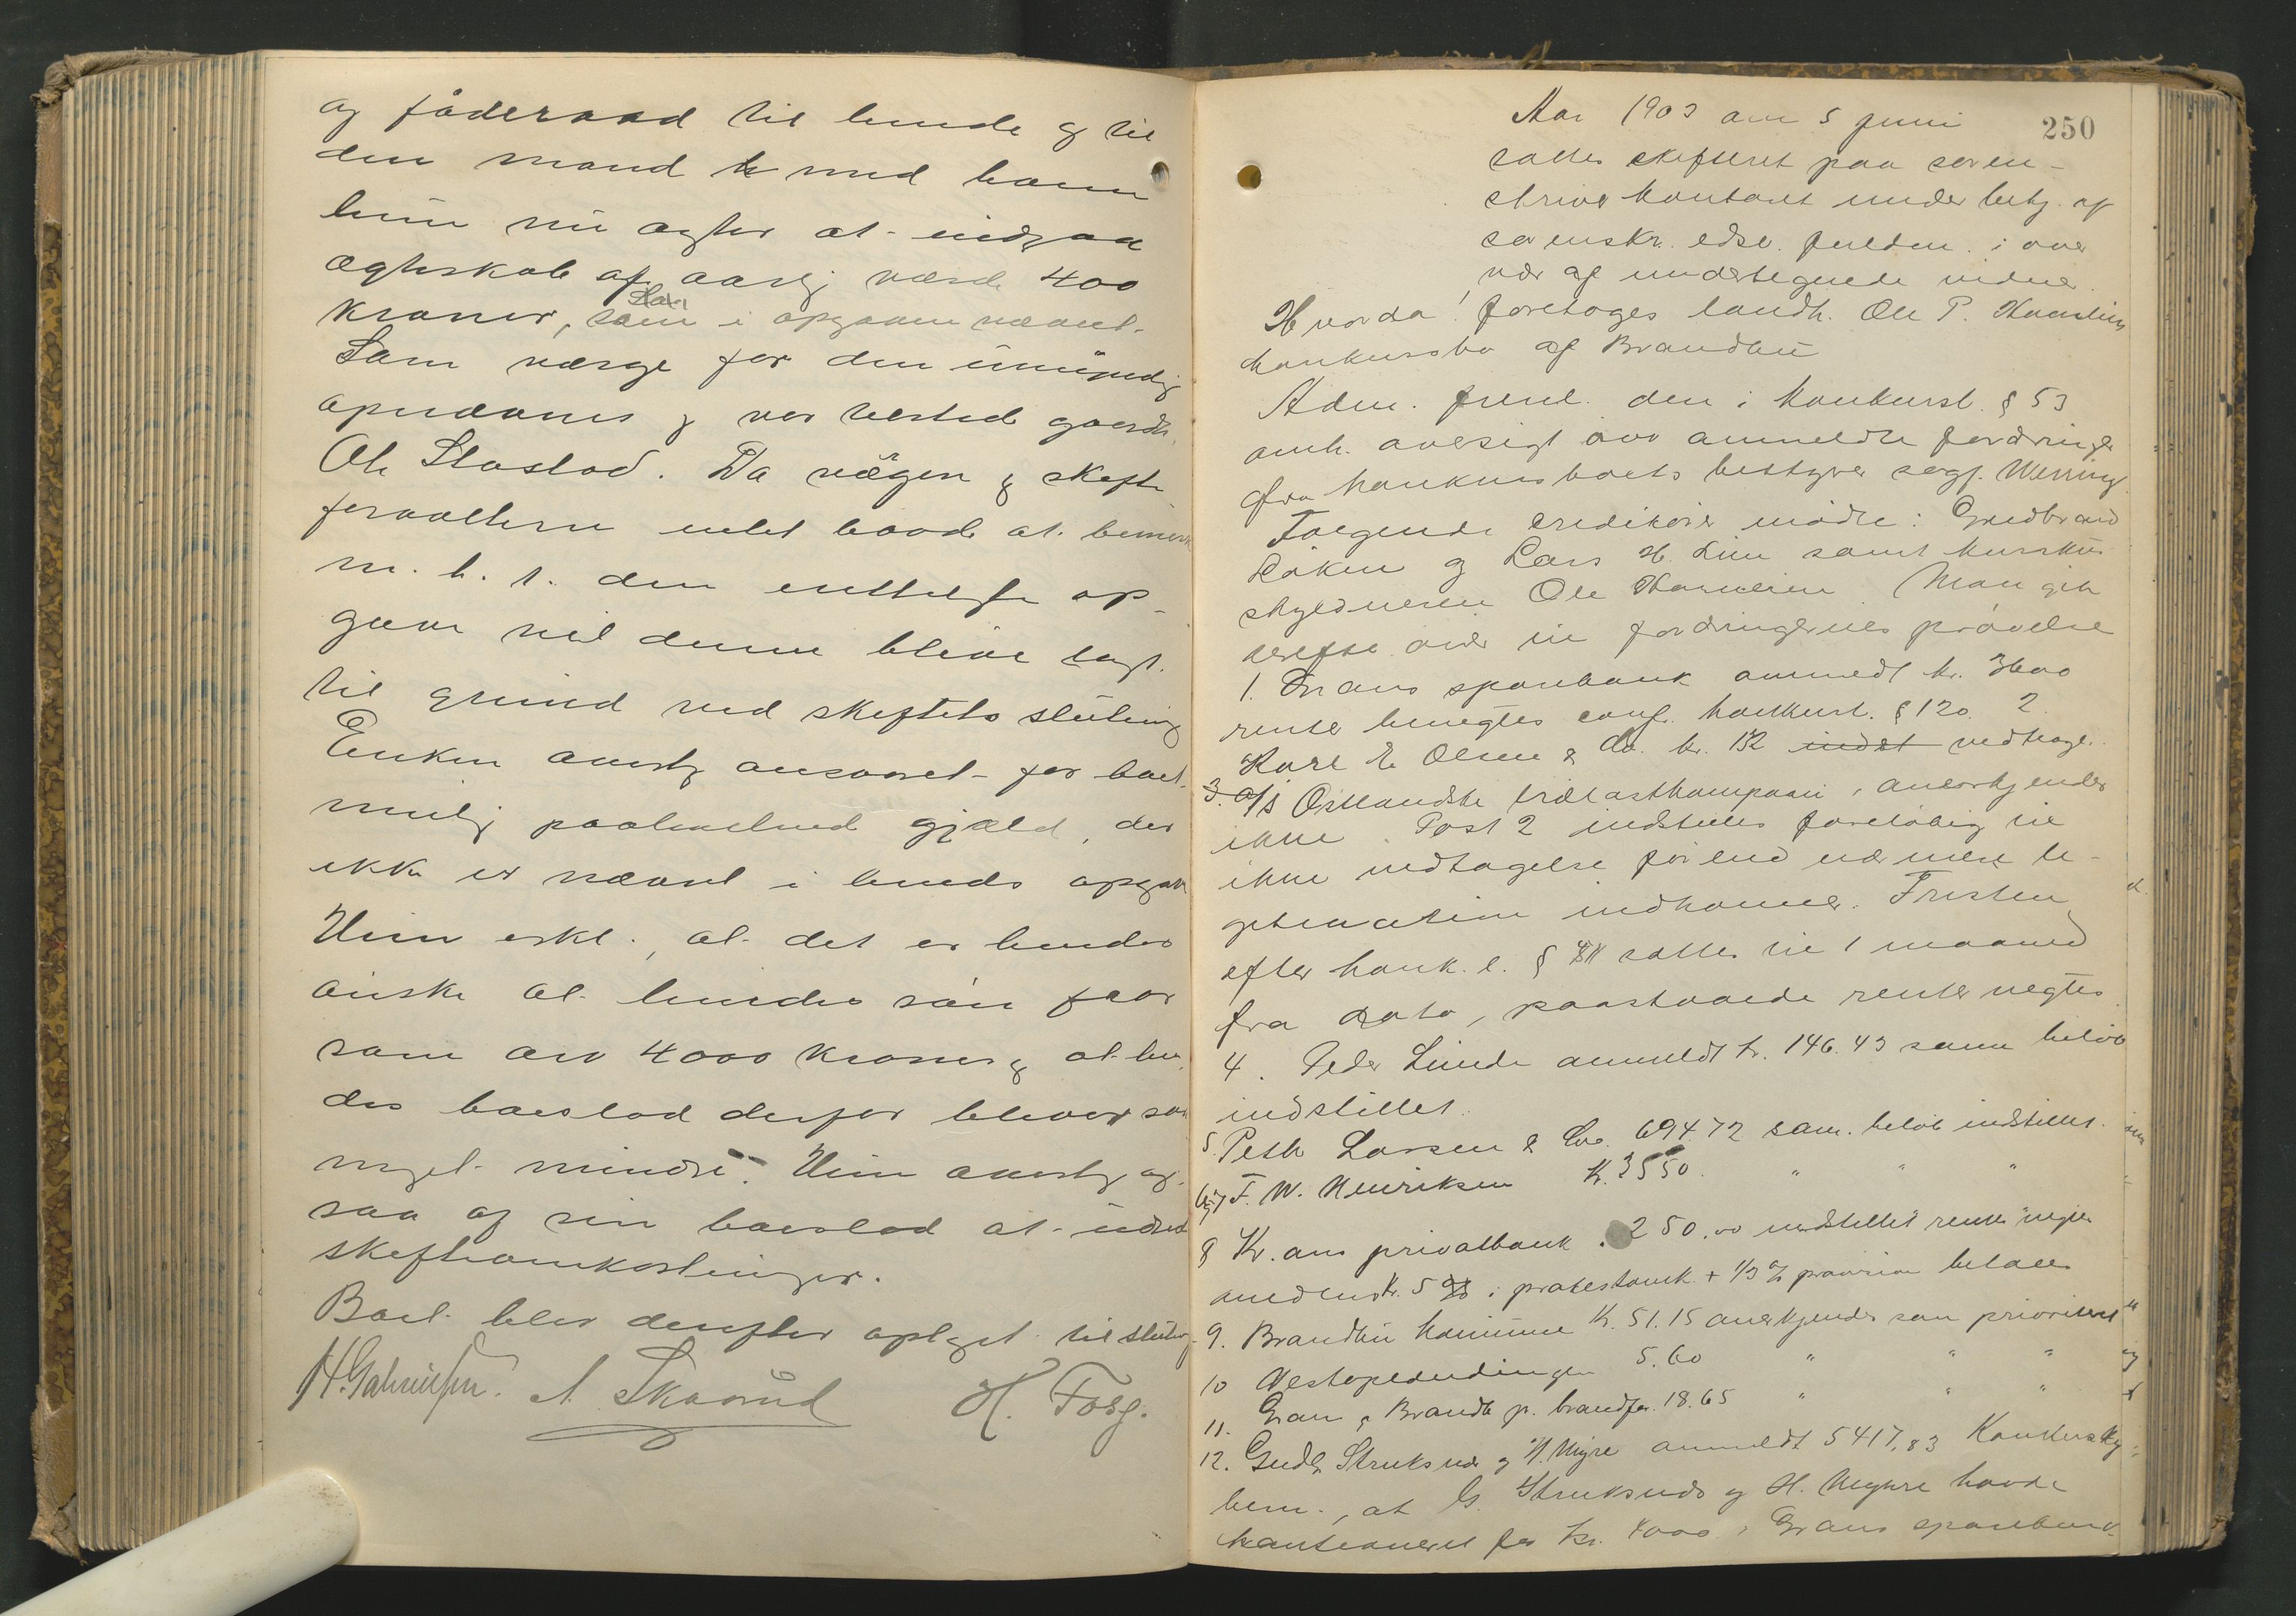 og föderaad til hende og til
den mand h med hvem
hun nu agter at indgaa
ægteskab af aarlig værdi 400
kroner, som i opgaven nævnt.
Som værge for den umyndig
opnævnes og var tilsted gaardb.
Ole Stastad. Da værgen og skifte
forvalteren intet havde at bemerk
m. h. t. den endelige op-
gave vil denne blive lagt
til grund ved skiftets slutning
Enken overtog ansvaret for boet
mulig paahvilende gjæld, der
ikke er nævnt i hendes opgave
Hun erkl., at det er hendes
önske at hendes sön faar
som arv 4000 kroner og at hen
des boeslod derfor bliver saa
meget mindre. Hun overtog og-
saa af sin boeslod at udrede
skifteomkostninger.
Boet blev derefter optaget til slutning
H. Gabrielsen. A. Skaarud H. Forg.
250
Aar 1903 den 5 juni
sattes skifteret paa soren-
skriverkontoret under bestyr. af
sorenskr. edsv. fuldm. i over
vær af undertegnede vidner.
Hvorda! foretoges landh. Ole P.
konkursbo af Brandbu
Adm. freml. den i konkursl. § 53
omh. oversigt over anmeldte fordringer
fra konkursboets bestyrer sagf. Werring
Følgende kreditorer mödte: Gudbrand
Löken og Lars H. Lien samt konkurs
skyldneren Ole. Man gik
derefter over til fordringernes prövelse
1. Grans sparebank anmeldt kr. 3600
renter benegtes conf. konkursl. § 120. 2.
Karl E Olsen & Co. kr. 132 indst vedtages.
3. A/S Östlandske trælastkompani, anerkjendes
ikke. Post 2 indstilles foreløbig til
ikke vedtagelse förend nærmere le-
gitimation indkommer. Fristen
efter konk. l. § sattes til 1 maaned
fra dato, paastaaede renter negtes
4. Peder Lunde anmeldt kr. 146.43 samme belöb
indstillet.
5. Peth Larsen & Co. 694.72 sam. belöb indstillet.
6 & 7 F. W. Henriksen Kr. 3550. " " "
8 Kr.ans privatbank . 250.00 indstillet renter negtes
anedens kr. 5 i protestomk. + 1/3 % provision betales
9. Brandbu kommune kr. 51.15 anerkjendes som prioriteret
10 Vestopledningen 5.60 " " "
11. Gran & Brandb. p. brandfor. 18.65 " " "
12. Gudb. Struksnæs og H. Myre anmeldt 5417,83 Konkurssky
bem., at G. Struksnæs og H. Myhre havde
kautioneret for kr. 4000 i Grans sparebank